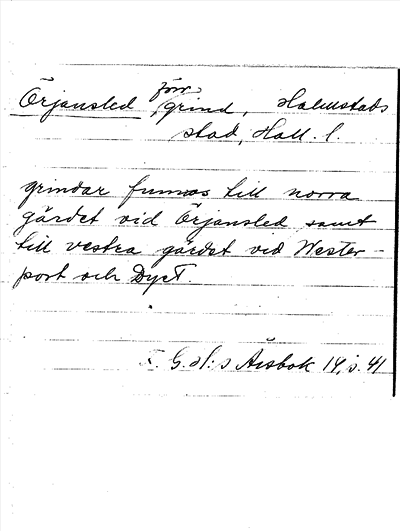 Örjansled förr grind, Halmstads
stad, Hall. l.
grindar funnos till norra
gärdet vid Örjansled samt
till vestra gärdet vid Wester-
port och Dyet.
G. H:s Årsbok 14, s. 41